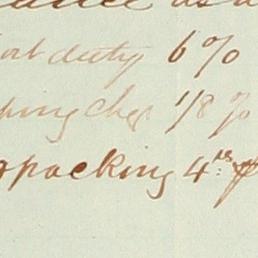 as a
ort duty 6 %
ping chgs 1/8 %
packing 4